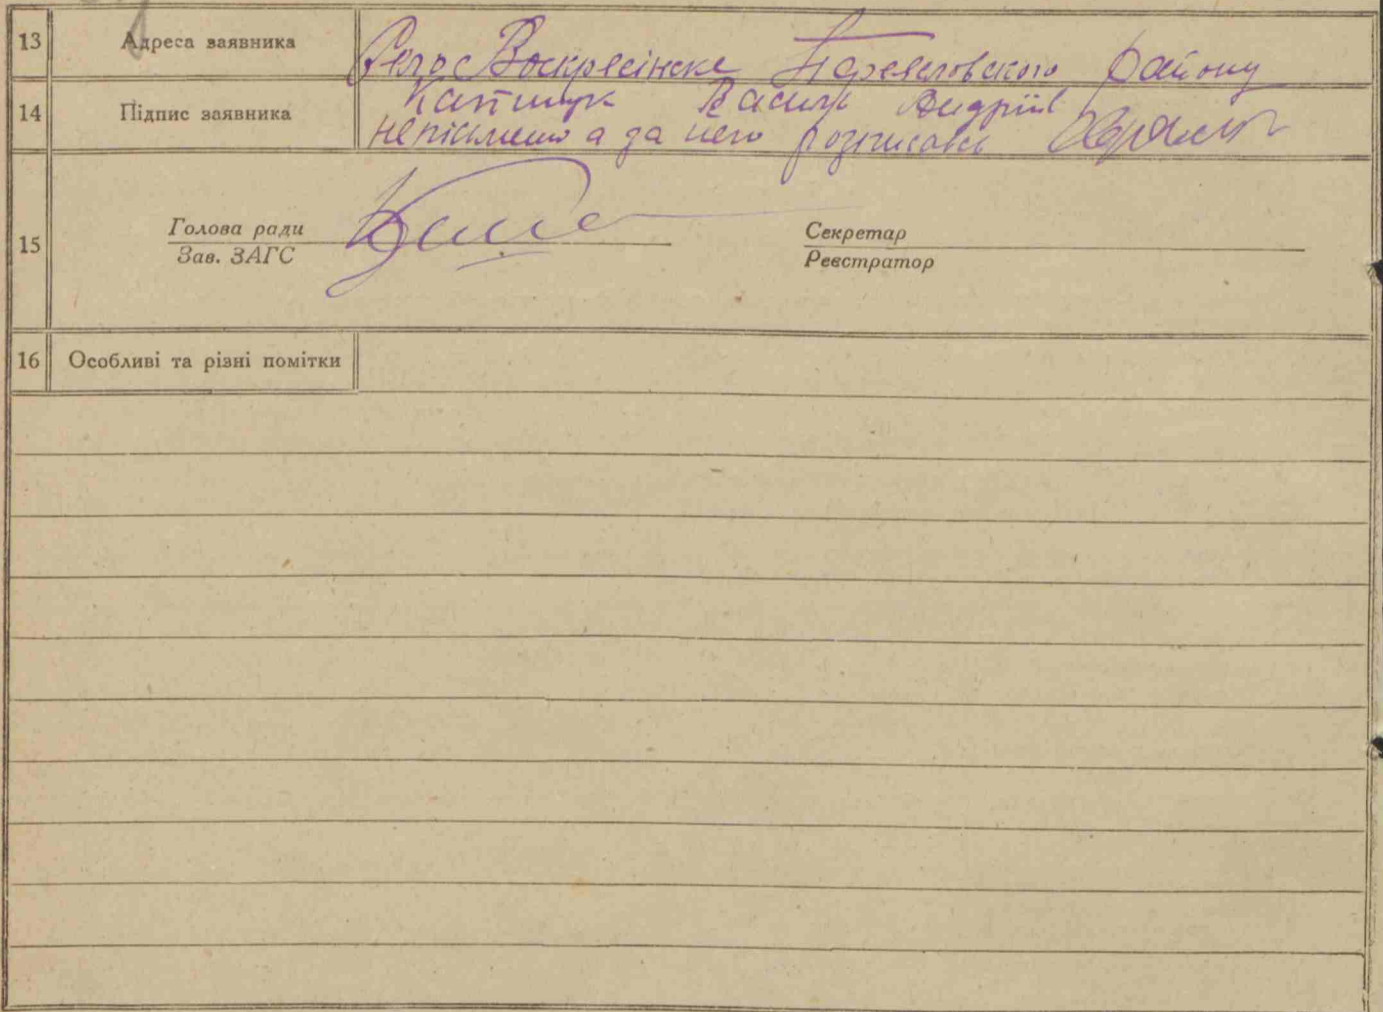 13 Адреса заявника Село Воскресінске району
14 Підпис заявника Василь Андрій
неписьмено а за него розписавсь
15 Голова ради
Зав. ЗАГС
Секретар
Реєстратор
16 Особливі та різні помітки